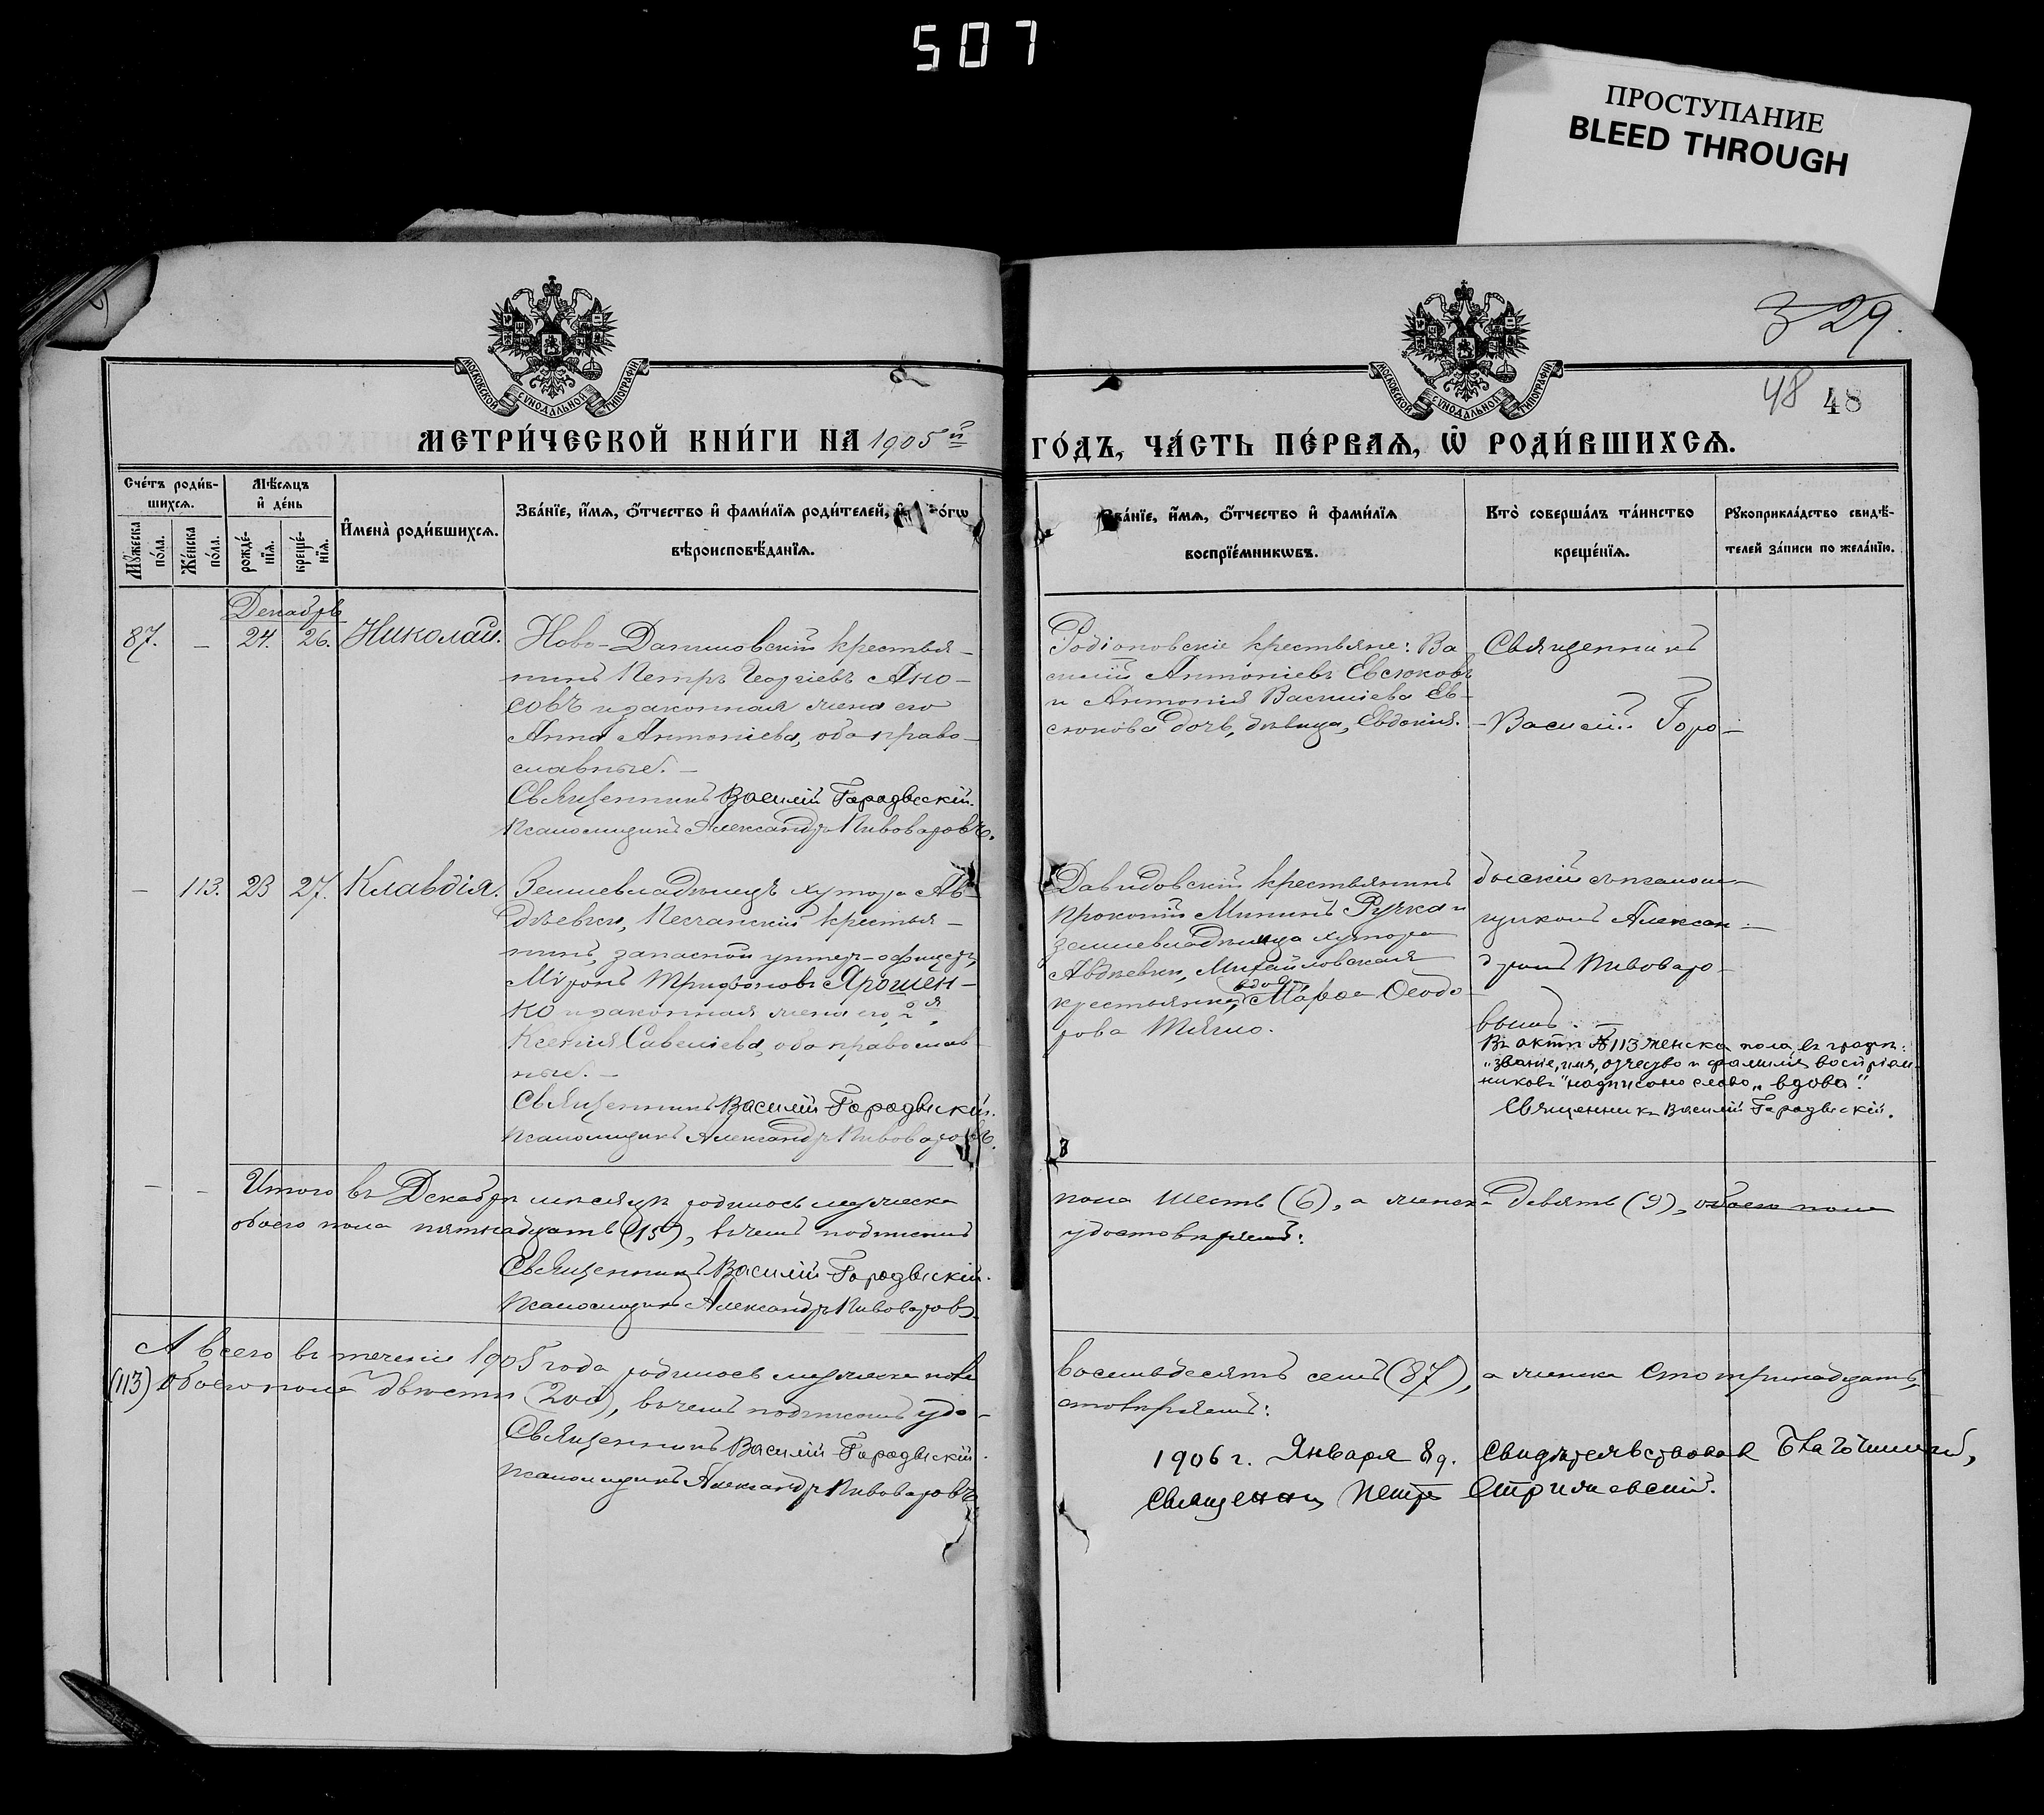 507
ПРОСТУПАНИЕ
BLEED THROUGH
З29.
48 48
МОСКОВСКОЙ СѴНОДАЛЬНОЙ ТИПОГРАФІИ
МОСКОВСКОЙ СѴНОДАЛЬНОЙ ТИПОГРАФІИ
МЕТРИ́ЧЕСКОЙ КНИ́ГИ НА 1905й
ГО́ДЪ, ЧА́СТЬ ПЕ́РВАѦ, Ѡ҆ РОДИ́ВШИХСѦ.
Сче́тъ роди́в-
шихсѧ.
Мꙋ́жеска по́ла.
Же́нска по́ла.
Мѣ́сѧцъ
и҆ де́нь
рожде́-
нїѧ.
креще́-
нїѧ.
И҆мена̀ роди́вшихсѧ.
Зва́нїе, и҆́мѧ, ѻ҆́тчество и҆ фами́лїѧ роди́телей,
вѣроисповѣ́данїѧ.
Зва́нїе, и҆́мѧ, ѻ҆́тчество и҆ фами́лїѧ
воспрїе́мникѡвъ.
Кто̀ соверша́лъ та́инство
креще́нїѧ.
Рꙋкоприкла́дство свидѣ́-
телей за́писи по жела́нїю.
Декабрь
87. — 24. 26. Николай.
Ново-Даниловскій крестья-
нинъ Петръ Георгіевъ Ано-
совъ и законная жена его
Анна Антоніева, оба право-
славные. —
Священникъ Василій Городыскій.
Псаломщикъ Александръ Пивоваровъ.
Родіоновскіе крестьяне: Ва
силій Антоніевъ Евсюковъ
и Антонія Василіева Ев-
сюкова дочь, дѣвица, Евдокія.
Священникъ
-Василій Горо-
— 113. 23 27. Клавдія.
Землевладѣлецъ хутора Ав-
дѣевки, Песчанскій крестья-
нинъ, запасной унтеръ-офицеръ,
Миронъ Трифоновъ Ярошен-
ко и законная жена его, 2я,
Ксенія Савеліева, оба православ-
ные. —
Священникъ Василій Городыскій.
Псаломщикъ Александръ Пивоваровъ.
Давидовскій крестьянинъ
Прокопій Мининъ Ручка и
землевладѣлица хутора
Авдѣевки, Михайловская
вдова,
крестьянка, Марѳа Ѳеодо-
рова Тягло.
дыскій съ псаломщ-
щикомъ Алексан-
дромъ Пивоваро-
вымъ. —
Въ актѣ №113 женска пола, въ графѣ:
„званіе, имя, отчество и фамилія воспріем-
никовъ" надписано слово „вдова".
Священникъ Василій Городыскій.
— — Итого въ Декабрѣ мѣсяцѣ родилось мужеска
пола шесть (6), а женска девять (9), обоего пола
обоего пола пятнадцать (15), въ чемъ подписомъ
удостовѣряемъ:
Священникъ Василій Городыскій.
Псаломщикъ Александръ Пивоваровъ.
А всего въ теченіе 1905 года родилось мужеска пола
восемьдесятъ семь (87), а женска сто тринадцать,
(113) обоего пола двѣсти (200), въ чемъ подписомъ удо-
стовѣряемъ:
Священникъ Василій Городыскій.
Псаломщикъ Александръ Пивоваровъ
1906 г. Января 8 д. Свидѣтельствовалъ Благочинный,
Священникъ Петръ